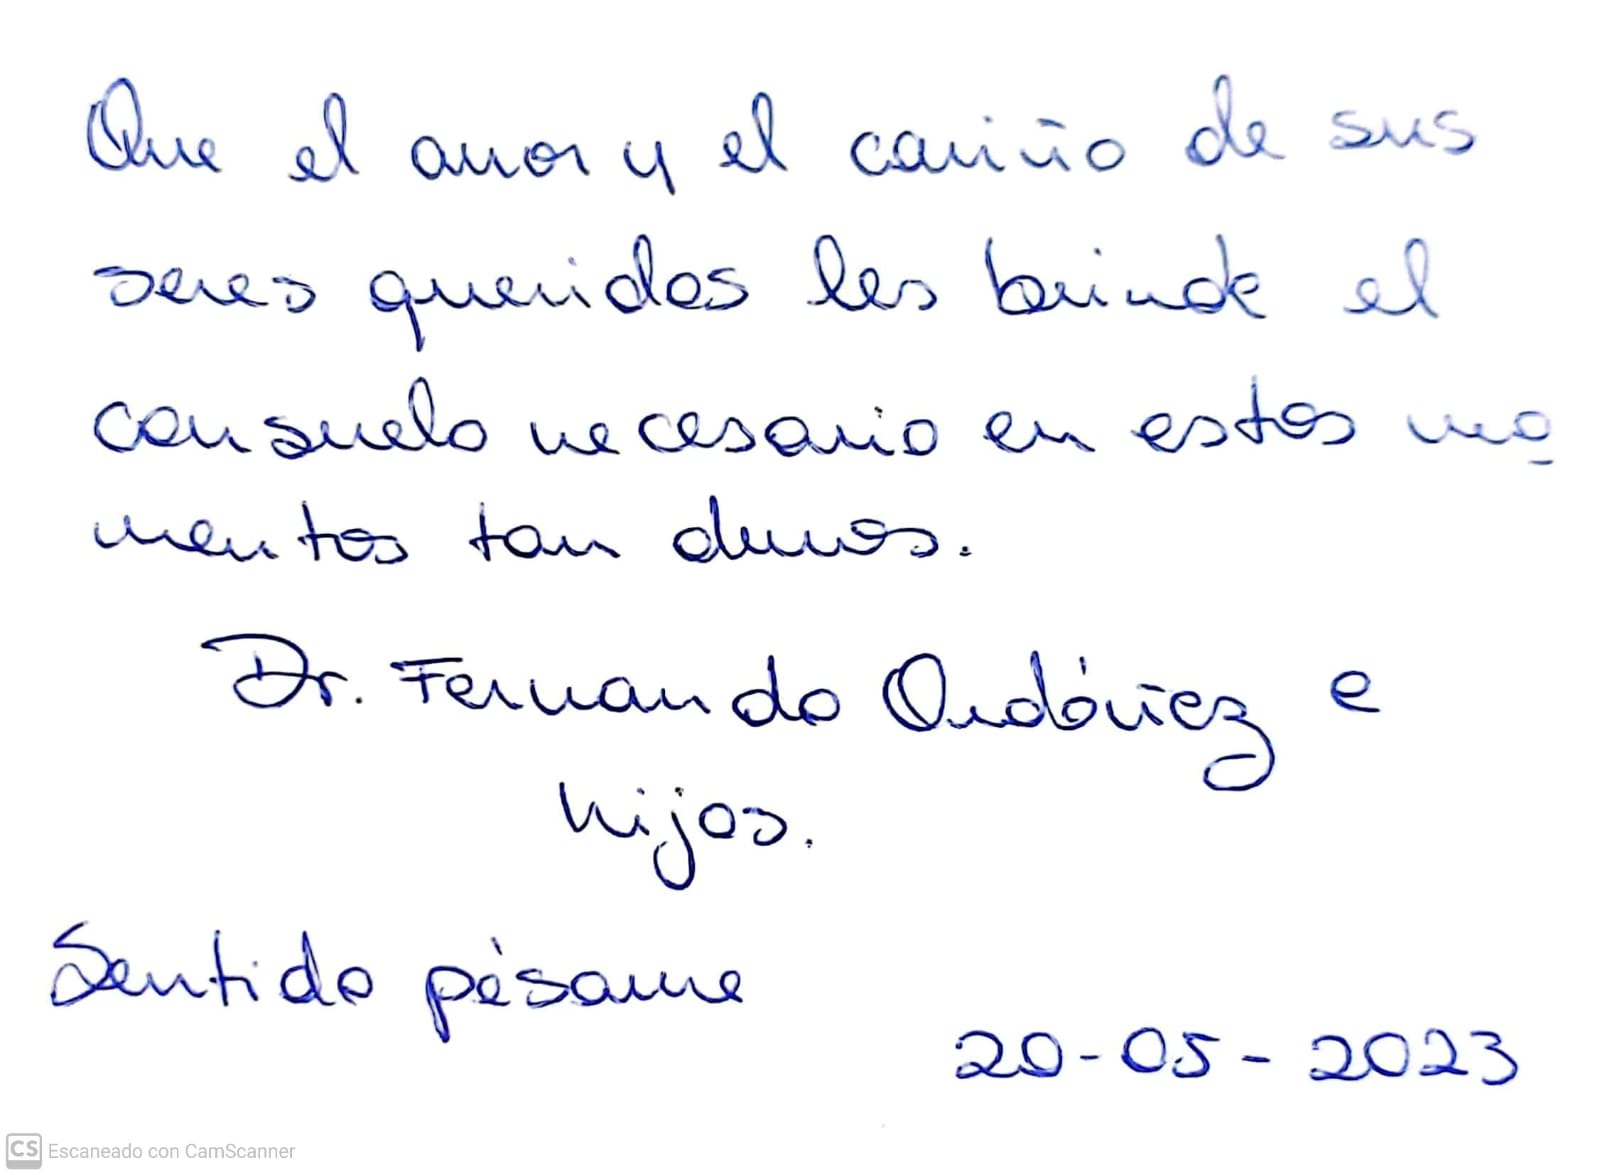 Que el amor y el cariño de sus
seres queridos les brinde el
consuelo necesario en estos mo
mentos tan duros.
Dr. Fernando Ordóñez e
hijos.
Sentido pésame
20-05-2023
CS Escaneado con CamScanner